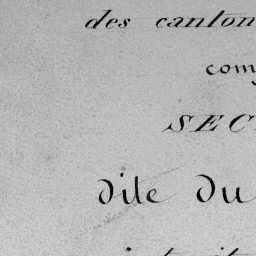 des canton
com
SEC
dite Du